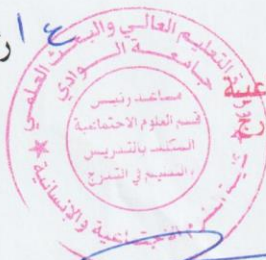 وزارة التعليم العالي والبحث العلمي
جامعة الوادي
مساعد رئيس
قسم العلوم الاجتماعية
المكلف بالتدريس
والتعليم في التدرج
كلية العلوم الاجتماعية والإنسانية